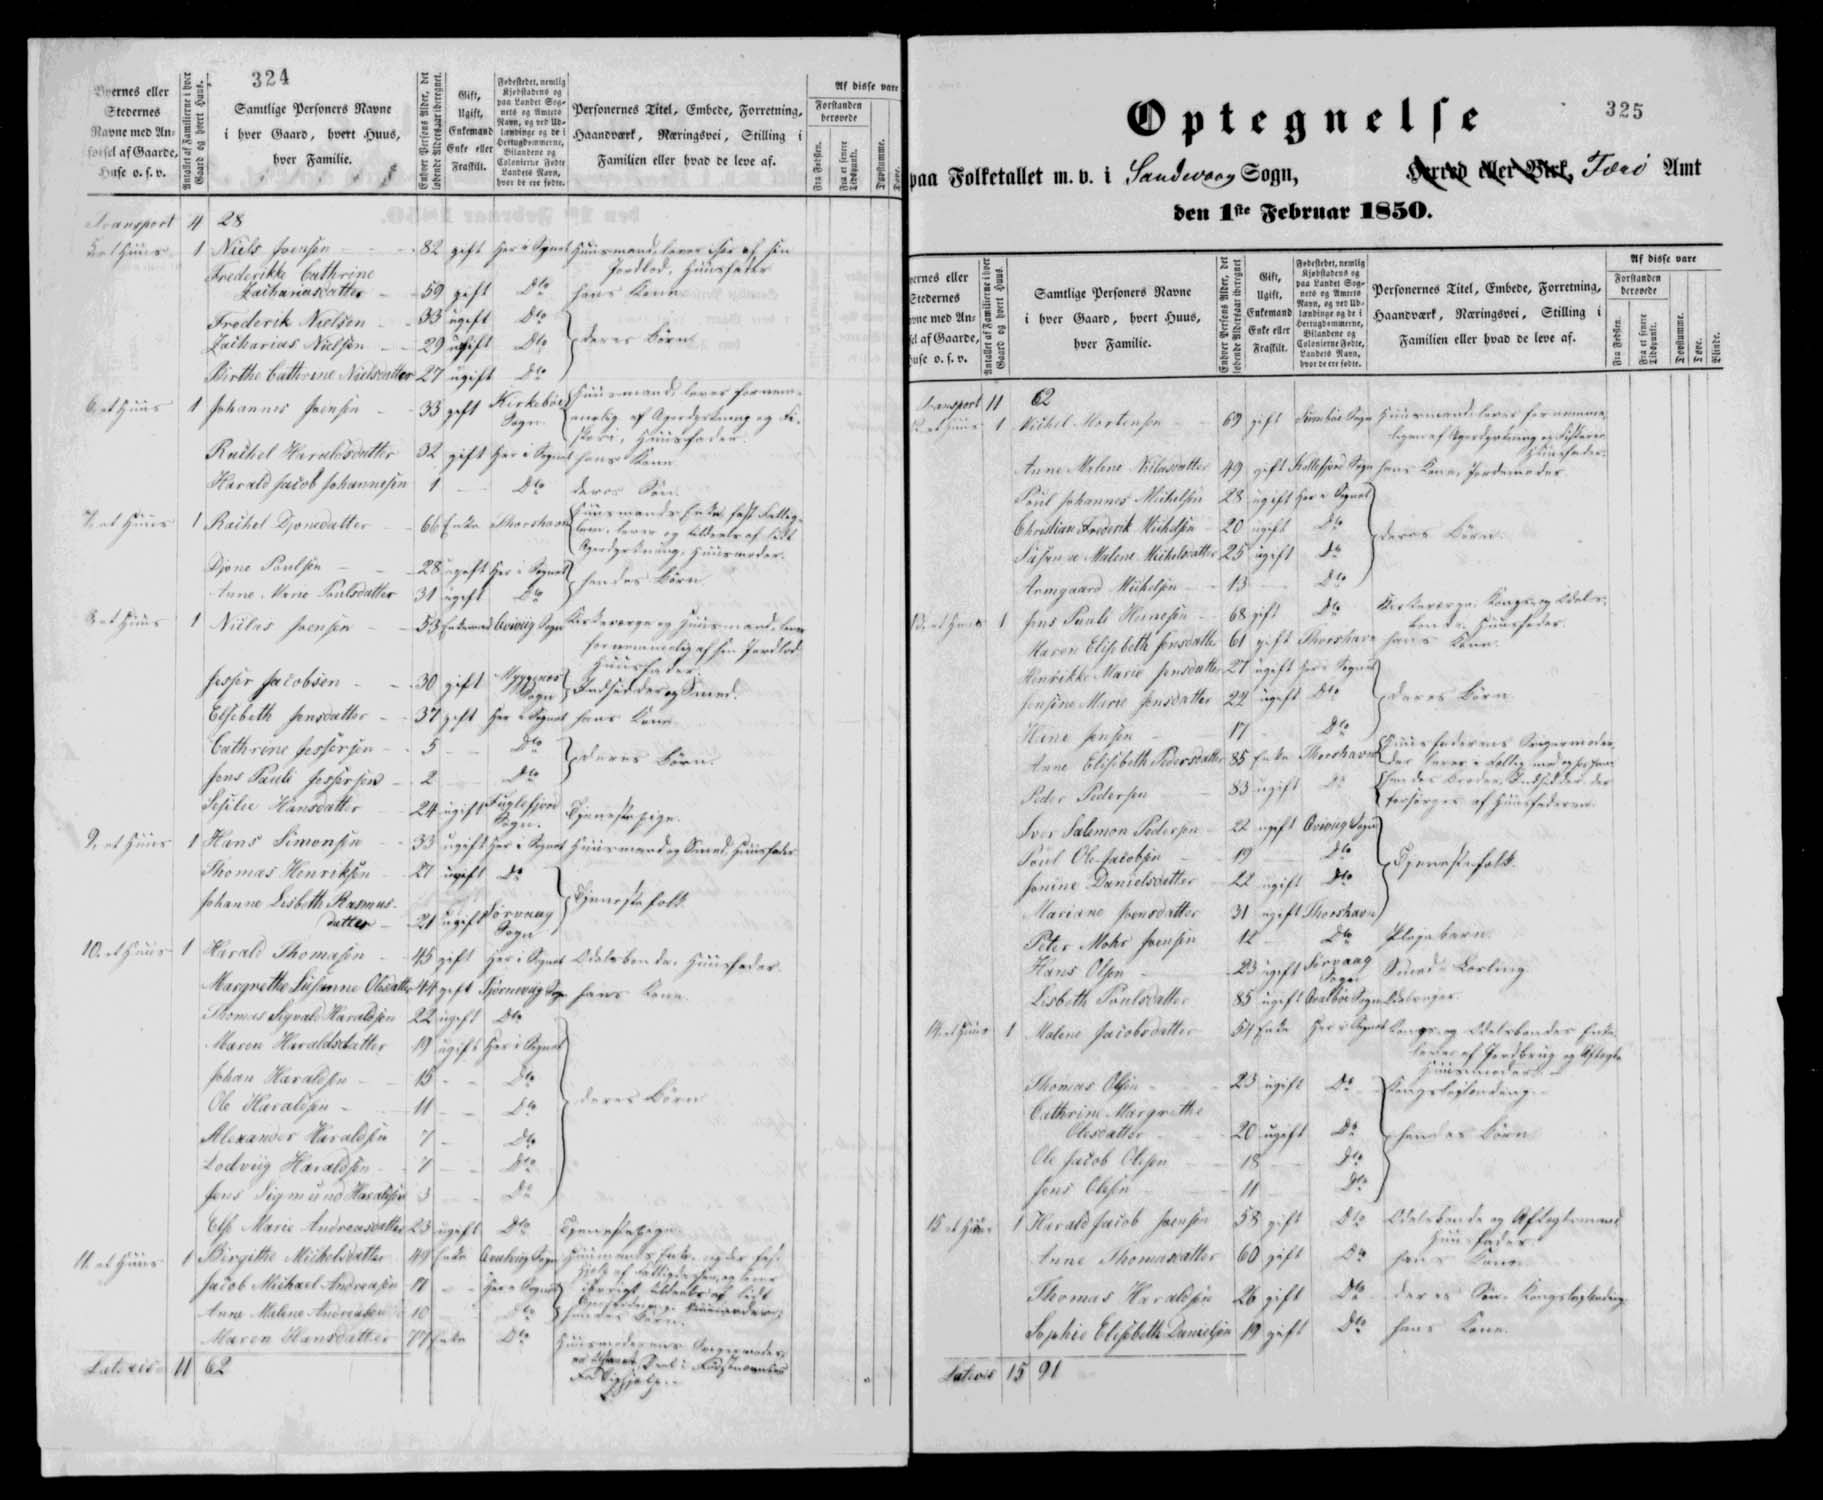 324
Byernes eller
Stedernes
Navne med An-
førsel af Gaarde,
Huse o. s. v.
Antallet af Familierne i hver
Gaard og hvert Huus.
Samtlige Personers Navne
i hver Gaard, hvert Huus,
hver Familie.
Enhver Persons Alder, det
løbende Aldersaar iberegnet.
Gift,
Ugift,
Enkemand
Enke eller
Fraskilt.
Fødestedet, nemlig
Kjøbstadens og
paa Landet Sog-
nets og Amtets
Navn, og ved Ud-
lændinge og de i
Hertugdømmerne,
Bilandene og
Colonierne Fødte
Landets Navn,
hvor de ere fødte.
Personernes Titel, Embede, Forretning,
Haandværk, Næringsvei, Stilling i
Familien eller hvad de leve af.
Af disse vare
Forstanden
berøvede
Fra Fødslen.
Fra et senere
Tidspunkt.
Døvstumme.
Døve.
Transport 4 28
et Huus 1 Niels Joensen 82 gift Her i Sognet Huusmand, lever af sin
Jordlod, Huusfader
Frederikke Cathrine
Zachariasdatter 59 gift Dto hans Kone
Frederik Nielsen 33 ugift Dto
Zacharias Nielsen 29 ugift Dto deres Børn
Birthe Cathrine Nielsdatter 27 ugift Dto
6, et Huus 1 Johannes Joensen 33 gift Kirkebøe Sogn. Huusmand, lever fornem-
melig af Agerdyrkning og Fi-
skeri, Huusfader.
Rachel Haraldsdatter 32 gift Her i Sognet hans Kone
Harald Jacob Johannesen 1 Dto deres Søn.
7, et Huus 1 Rachel Djonedatter 66 Enke Thorshavn Huusmands Enke, fast Fattig-
lem, lever og tildeels af lidt
Agerdyrkning, Huusmoder.
Djone Poulsen 28 ugift Her i Sognet
Anne Marie Poulsdatter 31 ugift Dto hendes Børn
8, et Huus 1 Niclas Joensen 53 Enkemand Qvivig Sogn Kirkeværge og Huusmand, lever
fornemmelig af sin Jordlod
Huusfader.
Jesper Jacobsen 30 gift Myggenæs Sogn Indsidder og Smed.
Elsebeth Jensdatter 37 gift Her i Sognet hans Kone
Cathrine Jespersen 5 Dto
Jens Pauli Jespersen 2 Dto deres Børn.
Sesilie Hansdatter 24 ugift Fuglefjord Sogn. Tjenestepige.
9, et Huus 1 Hans Simonsen 33 ugift Her i Sognet Huusmand og Smed, Huusfader
Thomas Henriksen 27 ugift Do
Johanne Lisbeth Rasmus-
datter 21 ugift Sørvaag Sogn Tjenestefolk.
10, et Huus 1 Harald Thomasen 45 gift Her i Sognet Odelsbonde, Huusfader.
Margrethe Susanne Olesdatter 44 gift Tjørnevig Sogn hans Kone.
Thomas Sigvald Haraldsen 22 ugift Dto
Maren Haraldsdatter 19 ugift Her i Sognet
Johan Haraldsen 15 Dto
Ole Haraldsen 11 Dto deres Børn
Alexander Haraldsen 7 Dto
Lodvig Haraldsen 7 Dto
Jens Sigmund Haraldsen 3 Do
Else Marie Andreasdatter 23 ugift Dto Tjenestepige
11, et Huus 1 Birgithe Michelsdatter 49 Enke Qvalvig Sogn Huusmands Enke, nyder
Hjelp af Fattigvæsenet, og lever
iøvrigt tildeels af lidt
Huusmoder.
Jacob Michael Andreasen 17 Her i Sognet
Anne Malene Andreasen 10 Dto hendes Børn.
Maren Hansdatter 77 Enke Dto Huusmoderens Svigermoder,
Latevis 11 62
325
Optegnelse
paa Folketallet m. v. i Sandevaag Sogn, Herred eller Birk, Færø Amt
den 1ste Februar 1850.
Byernes eller
Stedernes
Navne med An-
førsel af Gaarde,
Huse o. s. v.
Antallet af Familierne i hver
Gaard og hvert Huus.
Samtlige Personers Navne
i hver Gaard, hvert Huus,
hver Familie.
Enhver Persons Alder, det
løbende Aldersaar iberegnet
Gift,
Ugift,
Enkemand
Enke eller
Fraskilt.
Fødestedet, nemlig
Kjøbstadens og
paa Landet Sog-
nets og Amtets
Navn, og ved Ud-
lændinge og de i
Hertugdømmerne,
Bilandene og
Colonierne Fødte,
Landets Navn,
hvor de ere fødte.
Personernes Titel, Embede, Forretning,
Haandværk, Næringsvei, Stilling i
Familien eller hvad de leve af.
Af disse vare
Forstanden
berøvede
Fra Fødslen.
Fra et senere
Tidspunkt.
Døvstumme.
Døve.
Blinde.
Transport 11 62
12, et Huus 1 Michel Mortensen 69 gift Sumbøe Sogn Huusmand, lever fornemme-
ligen af Agerdyrkning og Fiskeri
Huusfader.
Anne Malene Niclasdatter 49 gift Kollefjord Sogn hans Kone, Jordemoder
Poul Johannes Michelsen 28 ugift Her i Sognet
Christian Frederik Michelsen 20 ugift Dto
Susanne Malene Michelsdatter 25 ugift Do deres Børn.
Armgaard Michelsen 13 Dto
13, et Huus 1 Jens Pauli Hansen 68 gift Dto Kirkeværge, Konge- og Odels-
bonde, Huusfader.
Maren Elisebeth Jensdatter 61 gift Thorshavn hans Kone.
Henrikke Marie Jensdatter 27 ugift Her i Sognet
Jensine Marie Jensdatter 22 ugift Dto deres Børn
Hans Jensen 17 Dto
Anne Elisebeth Pedersdatter 85 Enke Thorshavn Huusfaderens Svigermoder,
Peder Pedersen 83 ugift Do hendes Broder, Indsidder, der
forsørges af Huusfaderen.
Iver Salemon Pedersen 22 ugift Qvivig Sogn
Poul Ole Jacobsen 19 Dto
Janine Danielsdatter 22 ugift Dto Tjenestefolk.
Mariane Joensdatter 31 ugift Thorshavn
Peter Mohr Joensen 12 Dto Plejebarn.
Hans Olsen 23 ugift Sørvaag Sogn Smede Lærling
Lisbeth Poulsdatter 85 ugift Qvalbøe Sogn
14, et Huus 1 Malene Jacobsdatter 54 Enke Her i Sognet Konge- og Odelsbondes Enke,
lever af Jordbrug og Aftægt
Huusmoder.
Thomas Olsen 23 ugift Do Kongsleilænding
Cathrine Margrethe
Olesdatter 20 ugift Do hendes Børn
Ole Jacob Olesen 18 Dto
Jens Olesen 11 Dto
15, et Huus 1 Harald Jacob Joensen 58 gift Dto Odelsbonde og Aftægtsmand
Huusfader.
Anne Thomasdatter 60 gift Do hans Kone
Thomas Haraldsen 26 gift Dto deres Søn, Kongsleilænding
Sophie Elisebeth Danielsen 19 gift Dto hans Kone.
Latevis 15 91